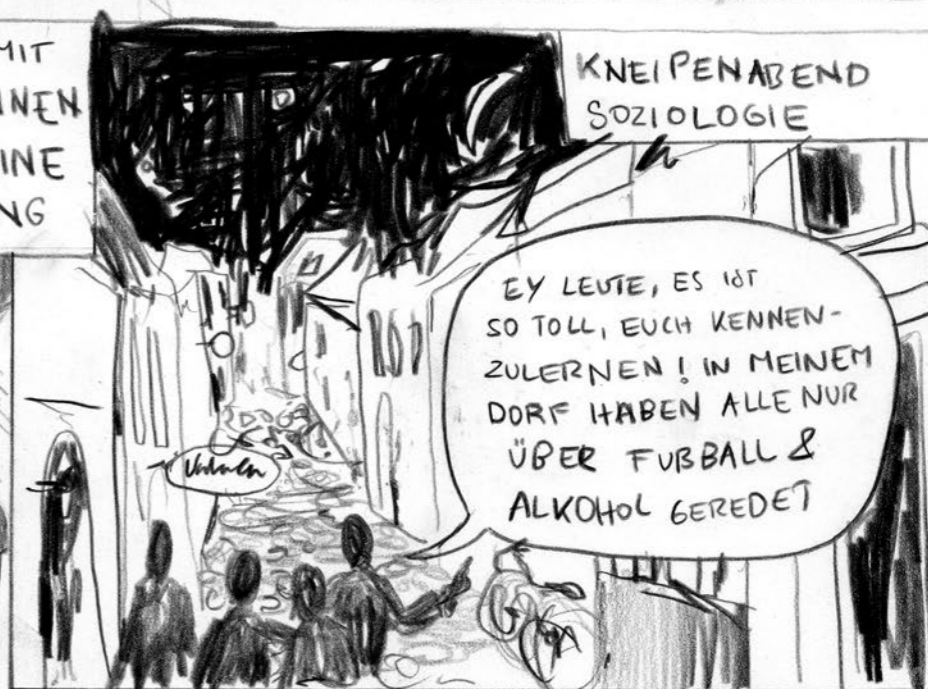 MIT
KNEIPENABEND
SOZIOLOGIE
EY LEUTE, ES IST
SO TOLL, EUCH KENNEN-
ZULERNEN! IN MEINEM
DORF HABEN ALLE NUR
ÜBER FUßBALL &
ALKOHOL GEREDET